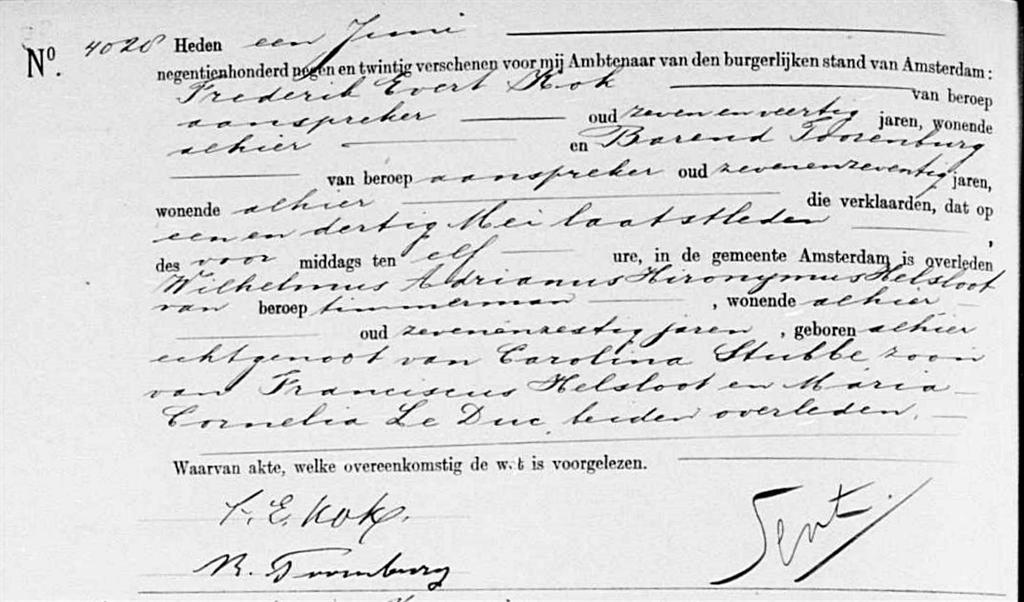 No. 4028 Heden een Juni
negentienhonderd negen en twintig verschenen voor mij Ambtenaar van den burgerlijken stand van Amsterdam:
Frederik Evert Kok van beroep
aanspreker oud zeven en veertig jaren, wonende
alhier en Barend Toorenburg
van beroep aanspreker oud zevenenzeventig jaren,
wonende alhier die verklaarden, dat op
een en dertig Mei laatstleden,
des voor middags ten elf ure, in de gemeente Amsterdam is overleden
Wilhelmus Adrianus Hironymus Helsloot
van beroep timmerman, wonende alhier
oud zevenenzestig jaren, geboren alhier
echtgenoot van Carolina Stubbe zoon
van Franciscus Helsloot en Maria
Cornelia Le Duc, beiden overleden.
Waarvan akte, welke overeenkomstig de wet is voorgelezen.
F. E. Kok.
B. Toorenburg